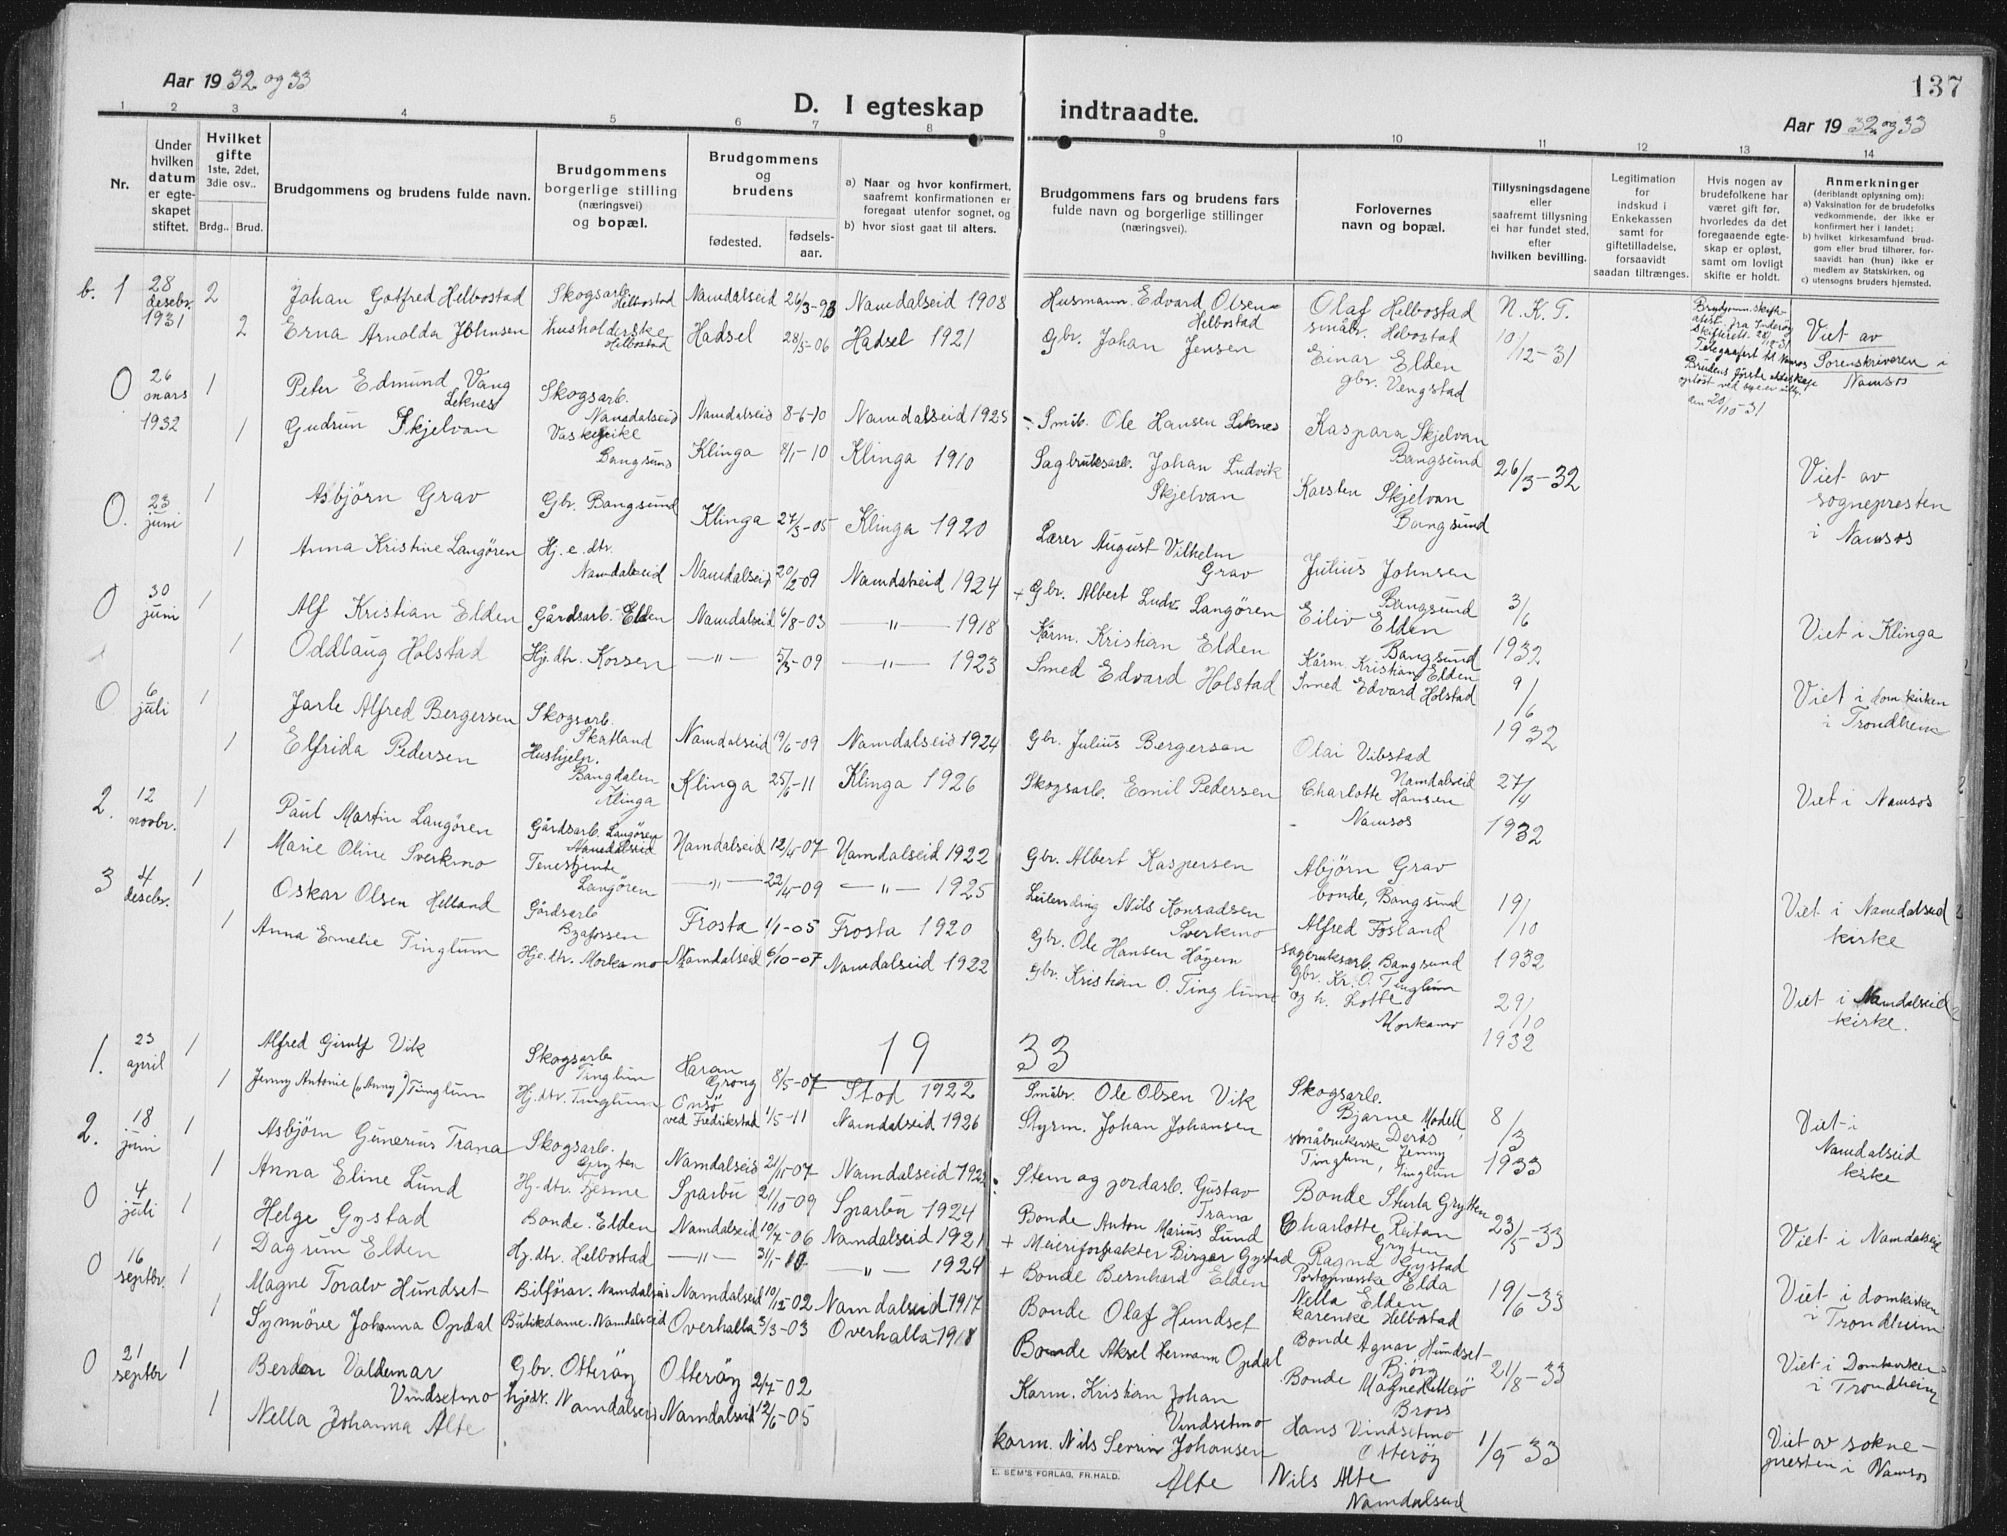 137
Aar 1932 og 33
D. I egteskap indtraadte.
Aar 1932 og 33
1 2 3 4 5 6 7 8 9 10 11 12 13 14
Nr.
Under hvilken datum er egteskapet stiftet.
Hvilket gifte 1ste, 2det, 3die osv..
Brdg.. Brud.
Brudgommens og brudens fulde navn.
Brudgommens borgerlige stilling (næringsvei) og bopæl.
Brudgommens og brudens
fødested. fødselsaar.
a) Naar og hvor konfirmert, saafremt konfirmationen er foregaat utenfor sognet, og
b) hvor sidst gaat til alters.
Brudgommens fars og brudens fars fulde navn og borgerlige stillinger (næringsvei).
Forlovernes navn og bopæl.
Tillysningsdagene eller saafremt tillysning ei har fundet sted, efter hvilken bevilling.
Legitimation for indskud i Enkekassen samt for giftetilladelse, forsaavidt saadan tiltrænges.
Hvis nogen av brudefolkene har været gift før, hvorledes da det foregaaende egteskap er opløst, samt om lovligt skifte er holdt.
Anmerkninger (deriblandt oplysning om):
a) Vaksination for de brudefolks vedkommende, der ikke er konfirmert her i landet;
b) hvilket kirkesamfund brudgom eller brud tilhører, forsaavidt han (hun) ikke er medlem av Statskirken, og
c) utensogns bruders hjemsted.
b. 1 28 desebr. 1931 2 Johan Gotfred Helbostad Skogsarb. Helbostad Namdalseid 26/3-93 Namdalseid 1908 Husmann Edvard Olsen Helbostad Olaf Helbostad småbr. Helbostad N.K.T.
2 Erna Arnolda Johnsen husholderske Helbostad Hadsel 28/5-06 Hadsel 1921 Gbr. Johan Jensen Einar Elden gbr. Vengstad 10/12-31
Viet av Sorenskriveren i Namsos
0 26 mars 1932 1 Peter Edmund Vang Leknes Skogsarb. Namdalseid Namdalseid 8-6-10 Namdalseid 1925 Småb. Ole Hansen Leknes Kaspara Skjelvan Bangsund
1 Gudrun Skjelvan Bangsund Klinga 8/1-10 Klinga 1910 Sagbruksarb. Johan Ludvik Skjelvan Karsten Skjelvan Bangsund 26/3-32 Viet av sognepresten i Namsos
0. 23 juni 1 Asbjörn Grav Gbr. Bangsund Klinga 27/3-05 Klinga 1920 Lærer August Vilhelm Grav Julius Johnsen Bangsund 3/6 1932
1 Anna Kristine Langören Hj.e.dtr. Namdalseid Namdalseid 20/2-09 Namdalseid 1924 + Gbr. Albert Ludv. Langören Eiliv Elden Bangsund Viet i Klinga
0 30 juni 1 Alf Kristian Elden Gårdsarb. Elden Namdalseid 6/8-03 —"— 1918 Kårm. Kristian Elden Kårm. Kristian Elden 9/6 1932
1 Oddlaug Holstad Hj.dtr. Korsen —"— 5/3-09 —"— 1923 Smed Edvard Holstad Smed Edvard Holstad Viet i domkirken i Trondheim
0 6 juli 1 Jarle Alfred Bergersen Skogsarb. Skatland Namdalseid 19/6-09 Namdalseid 1924 Gbr. Julius Bergersen Olai Vibstad Namdalseid 27/4 1932
1 Elfrida Pedersen Hushjelp. Bangdalen Klinga Klinga 25/6-11 Klinga 1926 Skogsarb. Emil Pedersen Charlotte Hansen Namsos Viet i Namsos
2. 12 novbr. 1 Paul Martin Langören Gårdsarb. Langören Namdalseid Namdalseid 12/4-07 Namdalseid 1922 Gbr. Albert Kaspersen Abjörn Grav bonde, Bangsund 19/10 1932
1 Marie Oline Sverkmo Tenestjente Langören —"— 22/4-09 —"— 1925 Leilending Nils Konradsen Sverkmo Alfred Fosland sagbruksarb. Bangsund Viet i Namdalseid kirke
3 4 desebr. 1 Oskar Olsen Helland Gårdsarb. Frosta 1/1-05 Frosta 1920 Gbr. Ole Hansen Gbr. Kr. O. Tinglum 29/10 1932
1 Anna Emelie Tinglum Hje.dtr. Morkamo Namdalseid 6/10-07 Namdalseid 1922 Gbr. Kristian O. Tinglum og h. Lotte Morkamo Viet i Namdalseid kirke.
1933
1. 23 april 1 Alfred Vik Skogsarb Tinglum Harran Grong 8/5-07 Stod 1922 Småbr. Ole Olsen Vik Skogsarb. Bjarne Modell, Derås 8/3 1933
1 Jenny Antonie ("Anny") Tinglum Hj.dtr. Tinglum Onsö ved Fredrikstad 1/5-11 Namdalseid 1926 Styrm. Johan Johansen småbrukerske Jenny Tinglum, Tinglum Viet i Namdalseid kirke
2. 18 juni 1 Asbjörn Gunerius Trana Skogsarb. Gryten Namdalseid 21/11-07 Namdalseid Sten og jordarb. Gustav Trana Bonde Sturla Grytten 23/5-33
1 Anna Eline Lund Hj.dtr. Sparbu 21/10-09 Sparbu 1924 Bonde Anton Marius Lund Charlotte Reitan Gryten Viet i Namdalseid
0 4 juli 1 Helge Gystad Bonde. Elden Namdalseid 10/7-06 Namdalseid 1921 + Meieriforpakter Birger Gystad Ragna Gystad Elda 19/6-33
1 Dagrun Elden Hj.dtr. Helbostad —"— 31/1-10 —"— 1924 + Bonde Bernhard Elden Nella Elden Helbostad Viet i domkirken i Trondheim
0 16 septbr. 1 Magne Toralv Hundset Bilförar. Namdalseid Namdalseid 10/12-02 Namdalseid 1917 Bonde Olaf Hundset Bonde Agnar Hundset 21/8-33
1 Synnöve Johanna Opdal Butikdame. Namdalseid Overhalla 3/3-03 Overhalla 1918 Bonde Aksel Hermann Opdal Bonde Magne Viet i Domkirken i Trondheim
0 21 septbr 1 Valdemar Vindsetmo Gbr. Otteröy Otteröy 2/7-02 Karm. Kristian Johan Vindsetmo Hans Vindsetmo Otteröy 1/9-33
1 Nella Johanna Alte Namdalseid Namdalseid 12/6-05 karm. Nils Johansen Alte Nils Alte Namdalseid Viet av sokne-presten i Namsos
E. SEM'S FORLAG, FR.HALD.